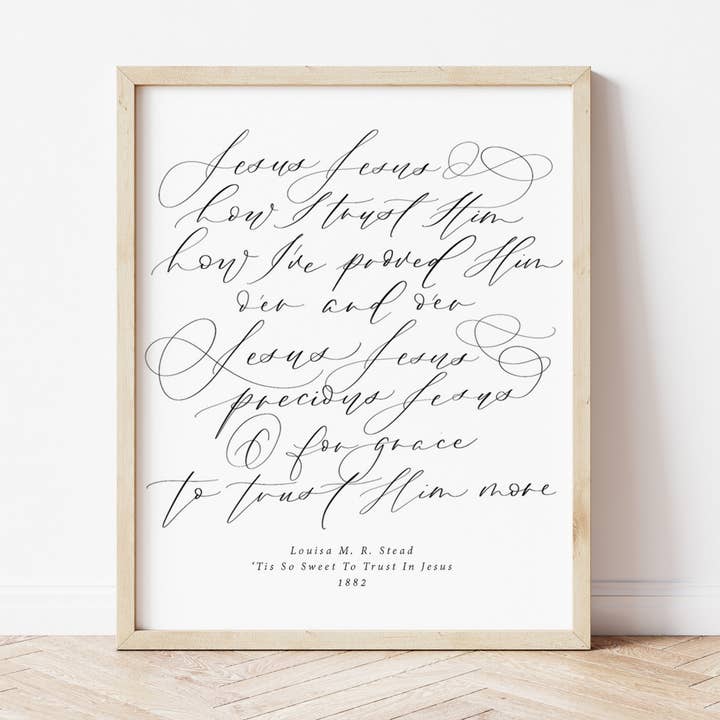 Jesus Jesus
how I trust Him
how I've proved Him
o'er and o'er
Jesus Jesus
precious Jesus
O for grace
to trust Him more
Louisa M. R. Stead
'Tis So Sweet To Trust In Jesus
1882